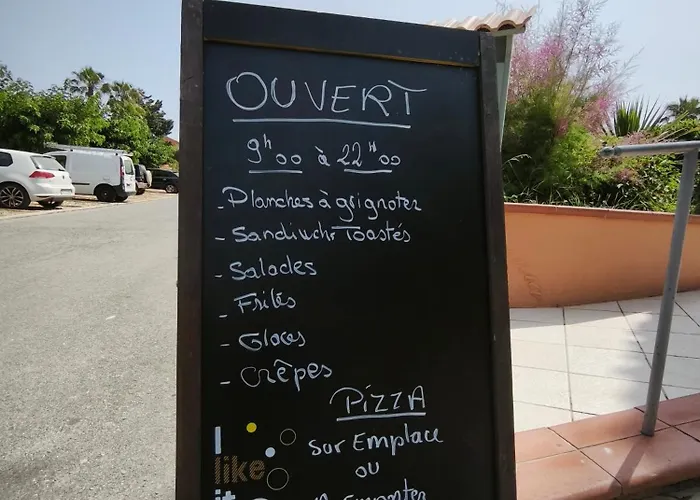 OUVERT
9h00 à 22H00
- Planches à grignoter
- Sandwichs Toastés
- Salades
- Frités
- Glaces
- Crêpes
PIZZA
Sur Emplace
ou
A Emporter
I
like
it